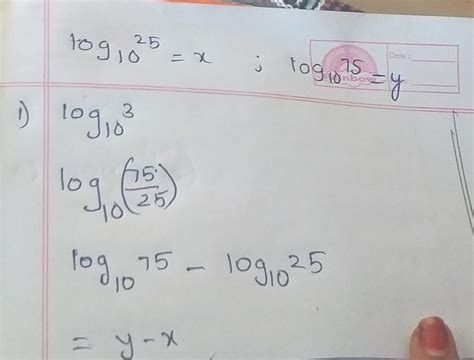 log₁₀25 = x ; log₁₀75 = y
Date :
1) log₁₀3
log₁₀(75/25)
log₁₀75 − log₁₀25
= y−x